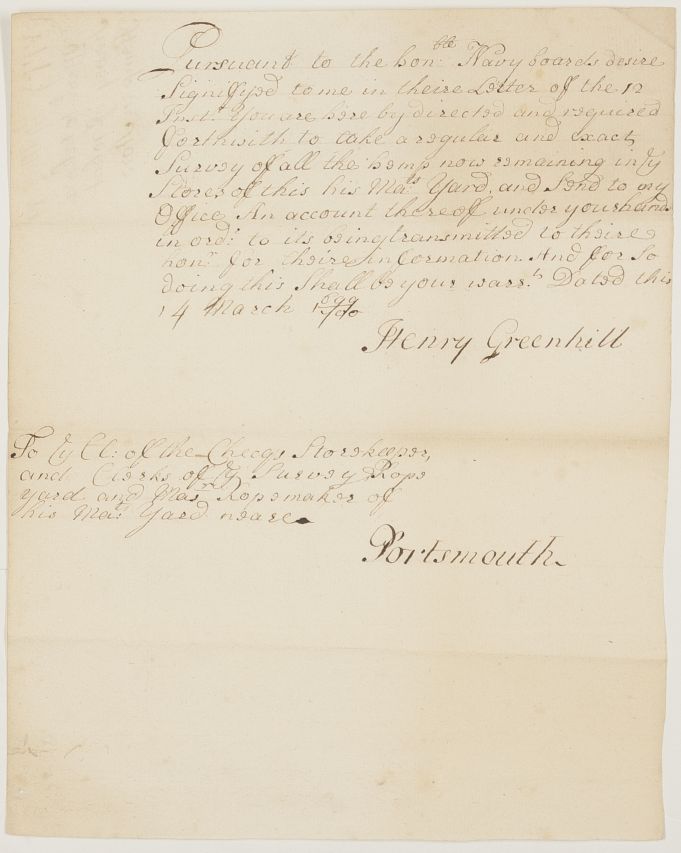 Pursuant to the hon:ble Navy boards desire
Signifyed to me in theire Letter of the 12
Inst:t You are here by directed and required
forthwith to take a regular and exact
Survey of all the hemp now remaining in ye
Stores of this his Ma:ts Yard, and Send to my
Office An account thereof under your hands
in ord:r to its being transmitted to theire
hon:rs for theire information And for So
doing this Shall be your warr:t Dated this
14 March 1699/700
Henry Greenhill
To ye Cl: of the Checqs Storekeeper,
and Clerks of ye Survey, Rope
yard and Mas:r Ropemaker of
his Ma:ts Yard neare
Portsmouth